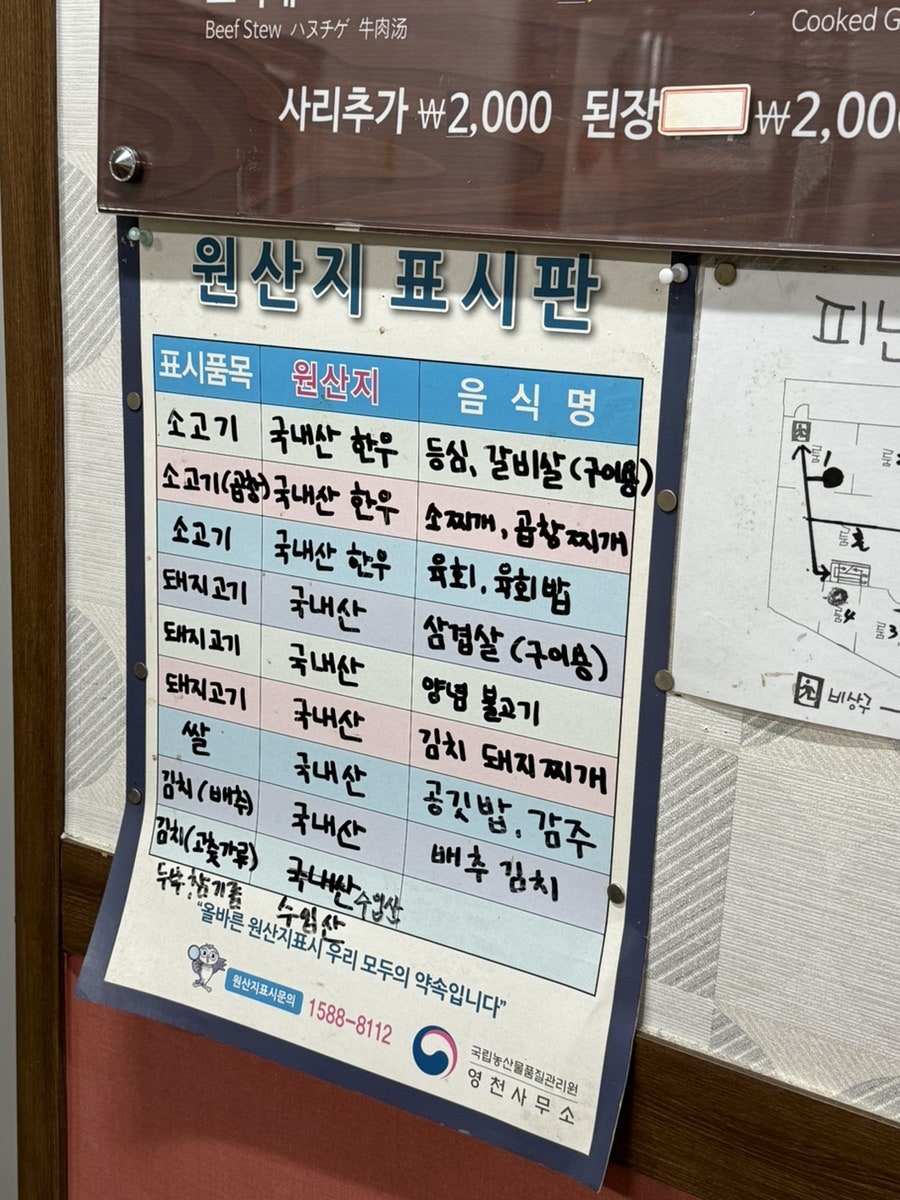 Beef Stew ハヌチゲ 牛肉汤
Cooked G
사리추가 ₩2,000 된장 ₩2,000
원산지 표시판
표시품목 원산지 음식명
소고기 국내산 한우 등심, 갈비살(구이용)
소고기(곱창) 국내산 한우 소찌개, 곱창찌개
소고기 국내산 한우 육회, 육회밥
돼지고기 국내산 삼겹살 (구이용)
돼지고기 국내산 양념 불고기
돼지고기 국내산 김치 돼지찌개
쌀 국내산 공깃밥, 감주
김치(배추) 국내산 배추 김치
김치(고춧가루) 국내산 수입산
두부, 참기름 수입산
"올바른 원산지표시 우리 모두의 약속입니다"
원산지표시문의 1588-8112
국립농산물품질관리원
영천사무소
피난
룸1
룸2
룸4
룸3
비상구